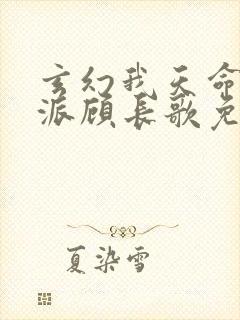 玄幻我天命
派顾长歌免
夏染雪